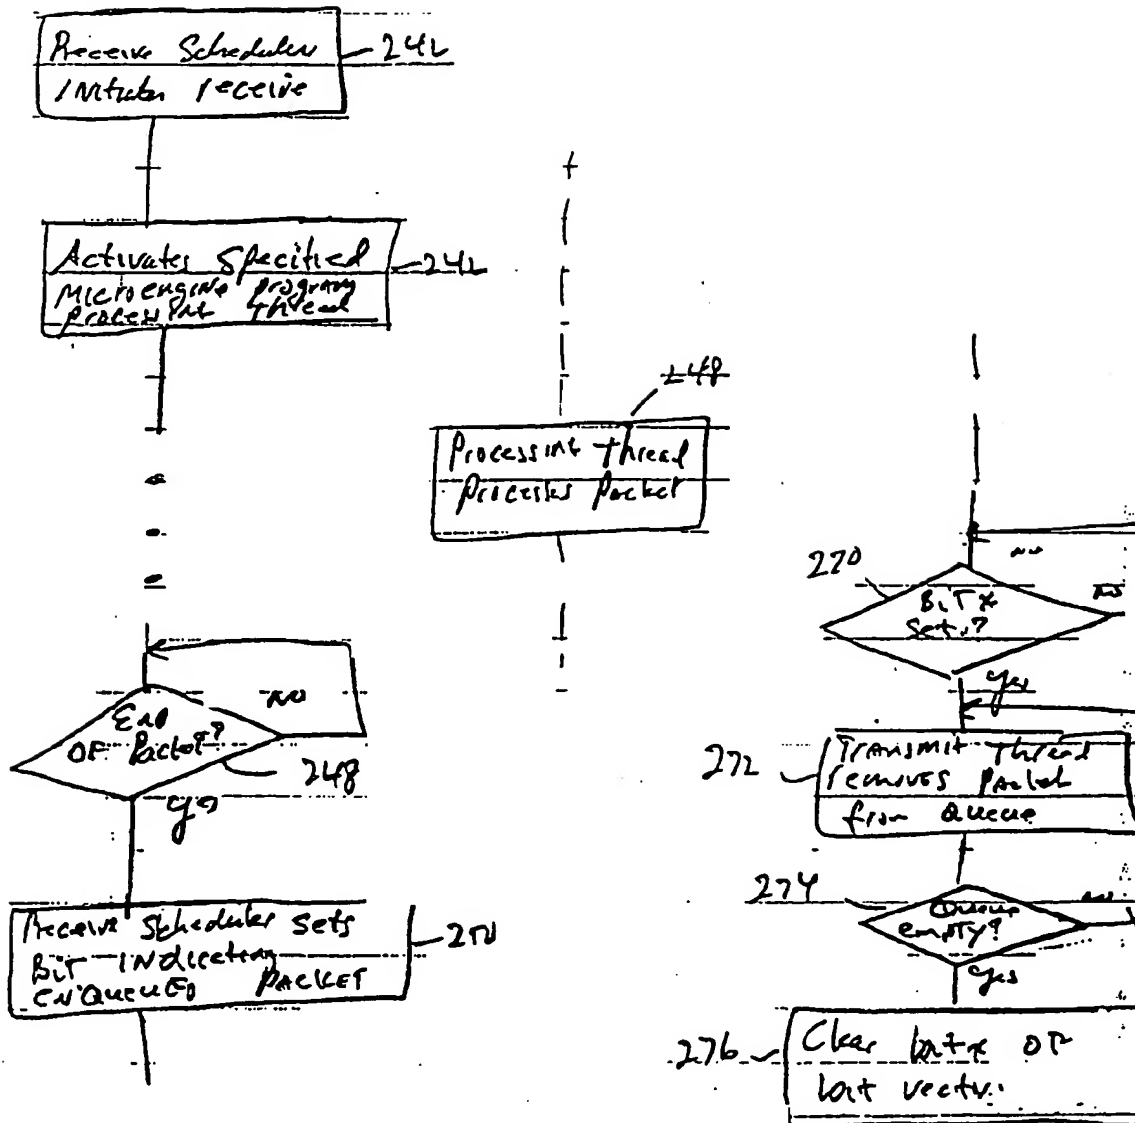 Receive Scheduler
Initiates receive
242
Activates Specified
Microengine program
processing thread
242
248
Processing thread
processes packet
End
OF Packet?
NO
248
yes
Receive Scheduler Sets
BIT INdicating
ENQUEUED PACKET
250
270
BIT x
Set?
NO
NO
yes
272
Transmit thread
removes packet
from Queue
274
Queue
empty?
NO
yes
276
Clear bit x of
bit vector